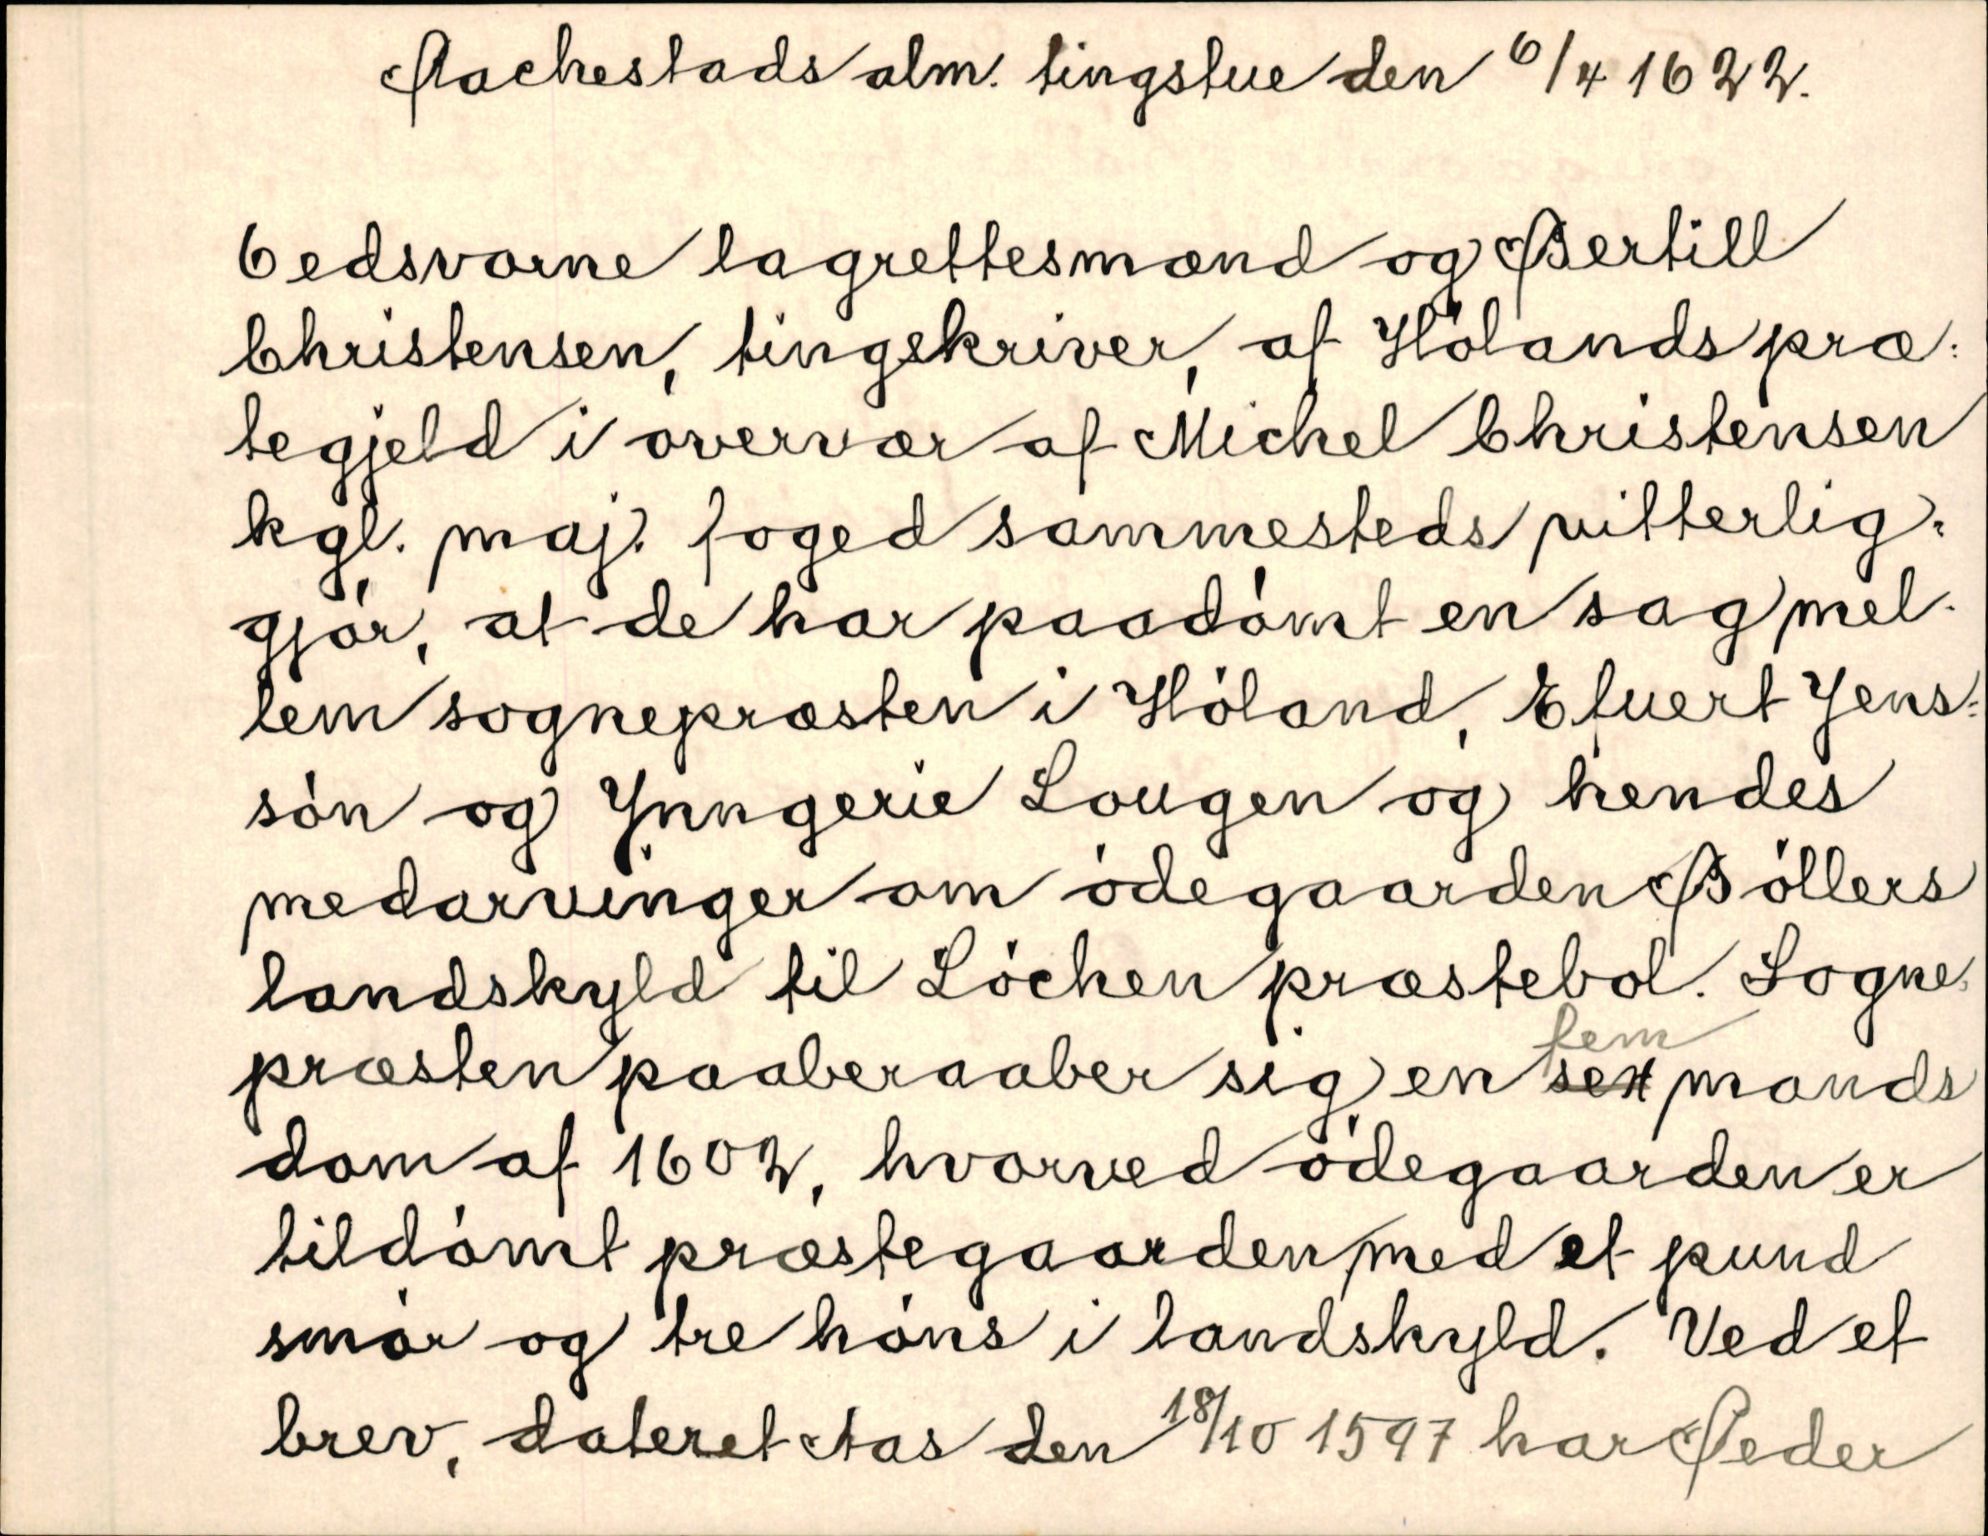 Aachestads alm. tingstue den 6/4 1622.
6 edsvorne lagrettesmænd og Bertill
Christensen, tingskriver, af Hölands præ:
tegjeld i overvær af Michel Christensen
kgl. maj. foged sammesteds vitterlig:
gjör, at de har paadömt en sag mel-
lem sognepræsten i Höland, Efuert Jens:
sön og Ynngerie Lougen og hendes
medarvinger om ödegaarden Böllers
landskyld til Löchen præstebol. Sogne
præsten paaberaaber sig en fem mands
dom af 1602, hvorved ödegaarden er
tildömt præstegaarden med et pund
smör og tre höns i landskyld. Ved et
brev, dateret Aas den 18/10 1597 har Peder